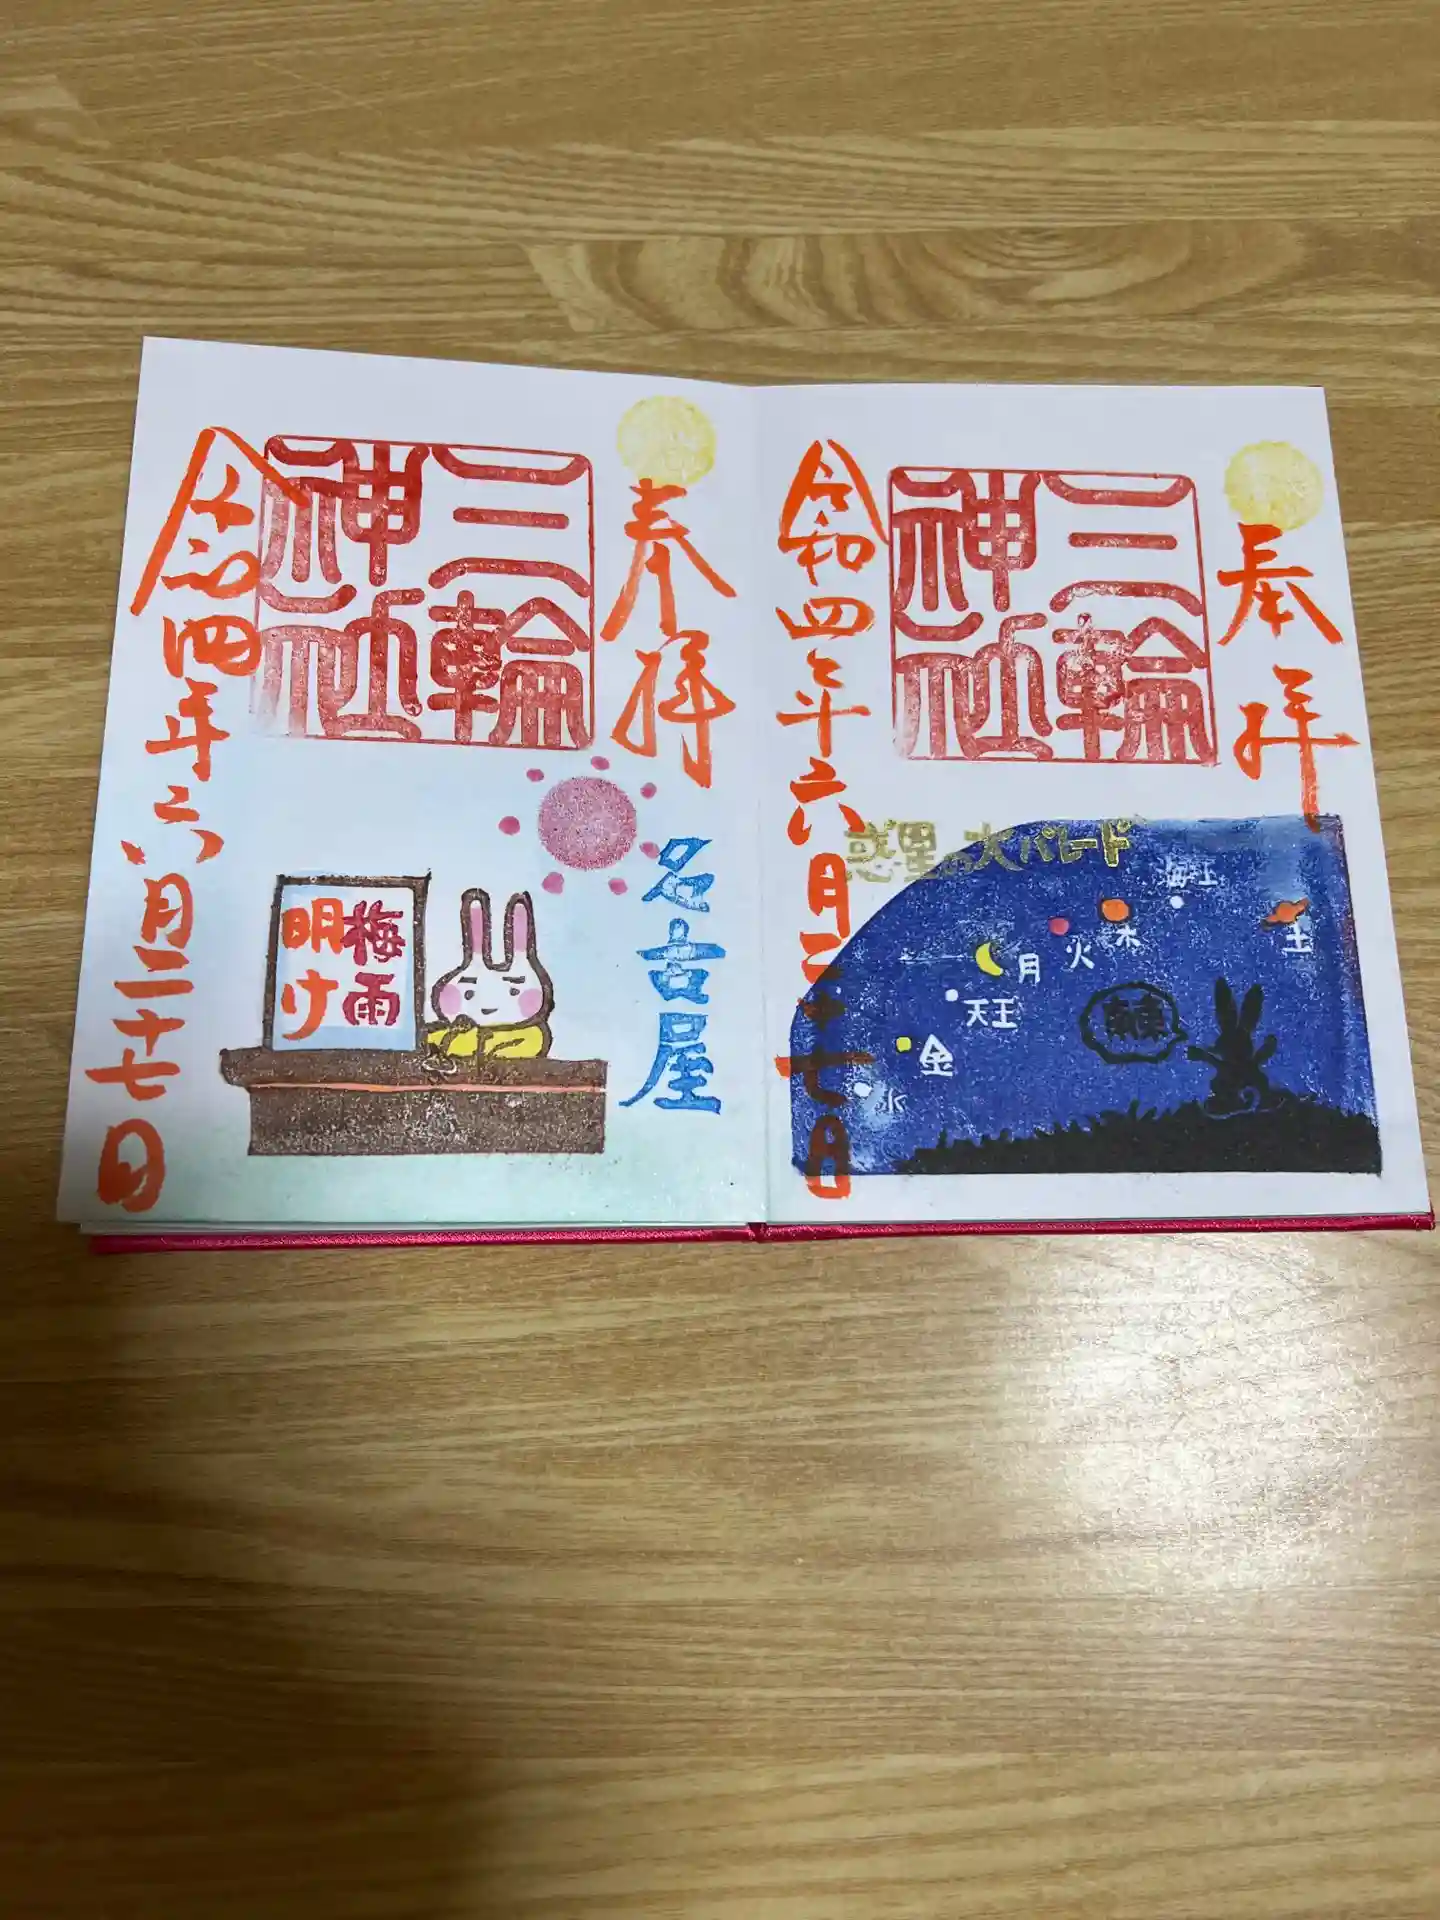 奉拝
三輪
神社
惑星の大パレード
海王
土
木
火
月
天王
金
水
南東
令和四年六月二十七日
奉拝
三輪
神社
名古屋
梅雨
明け
令和四年六月二十七日